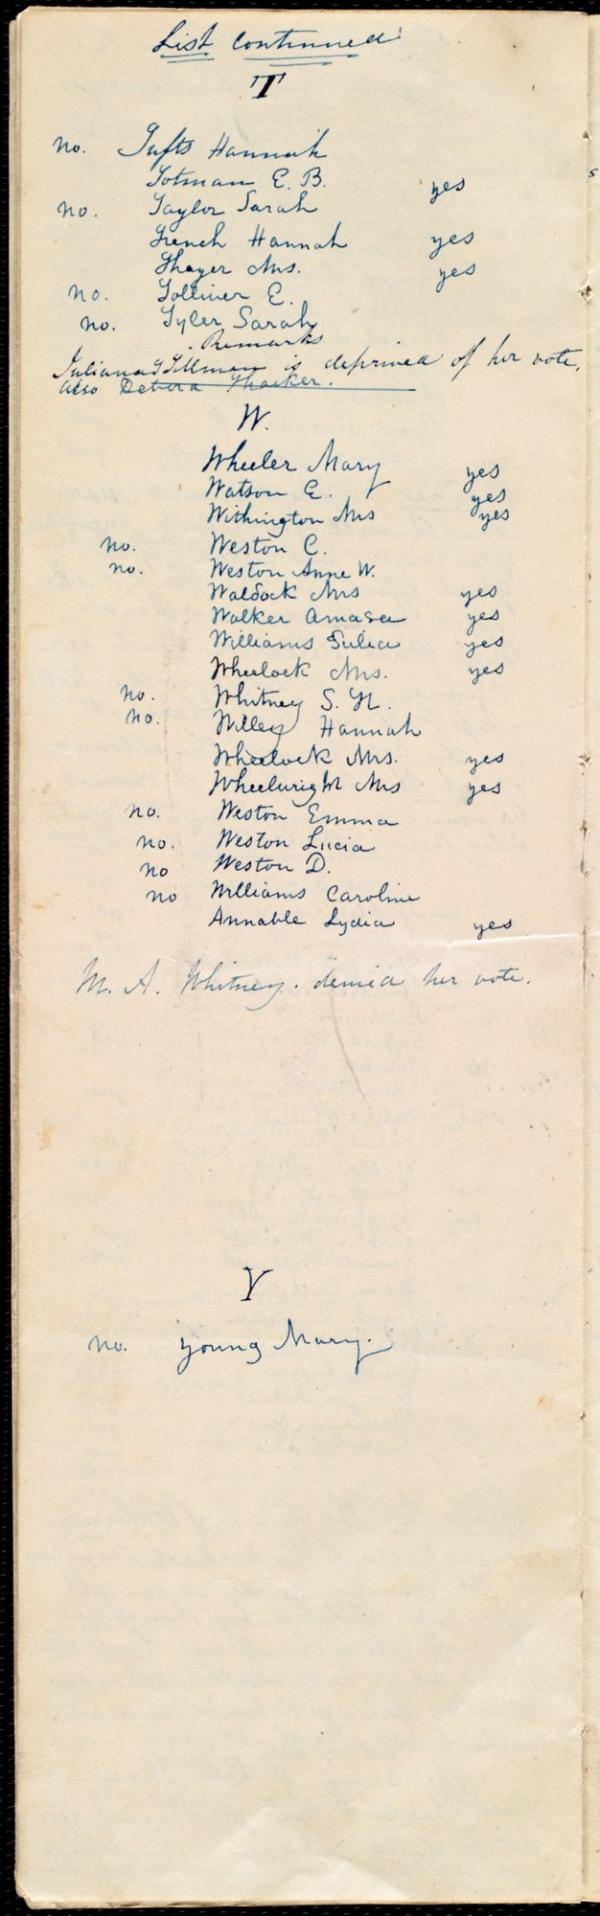 List continued
T
no. Tufts Hannah
Totman E. B. yes
no. Taylor Sarah
French Hannah yes
Thayer Mrs. yes
no. Tolliver E.
no. Tyler Sarah
Remarks
Juliana Tillman is deprived of her vote,
also Debora Thacker.
W.
Wheeler Mary yes
Watson E. yes
Withington Mrs yes
no. Weston C.
no. Weston Anne W.
Waldock Mrs yes
Walker Amasa yes
Williams Julia yes
Wheelock Mrs. yes
no. Whitney S. H.
no. Willey Hannah
Wheelock Mrs. yes
Wheelwright Mrs yes
no. Weston Emma
no. Weston Lucia
no Weston D.
no Williams Caroline
Annable Lydia yes
M. A. Whitney. denied her vote.
Y
no. Young Mary.